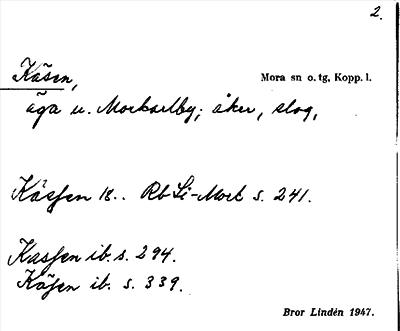 2.
Kåsen, Mora sn o. tg, Kopp. l.
äga u. Morkarlby; åker, slog,
Kåssen 18.. Rb Li-Mort s. 241.
Kassen ib. s. 294.
Kåsen ib. s. 339.
Bror Lindén 1947.